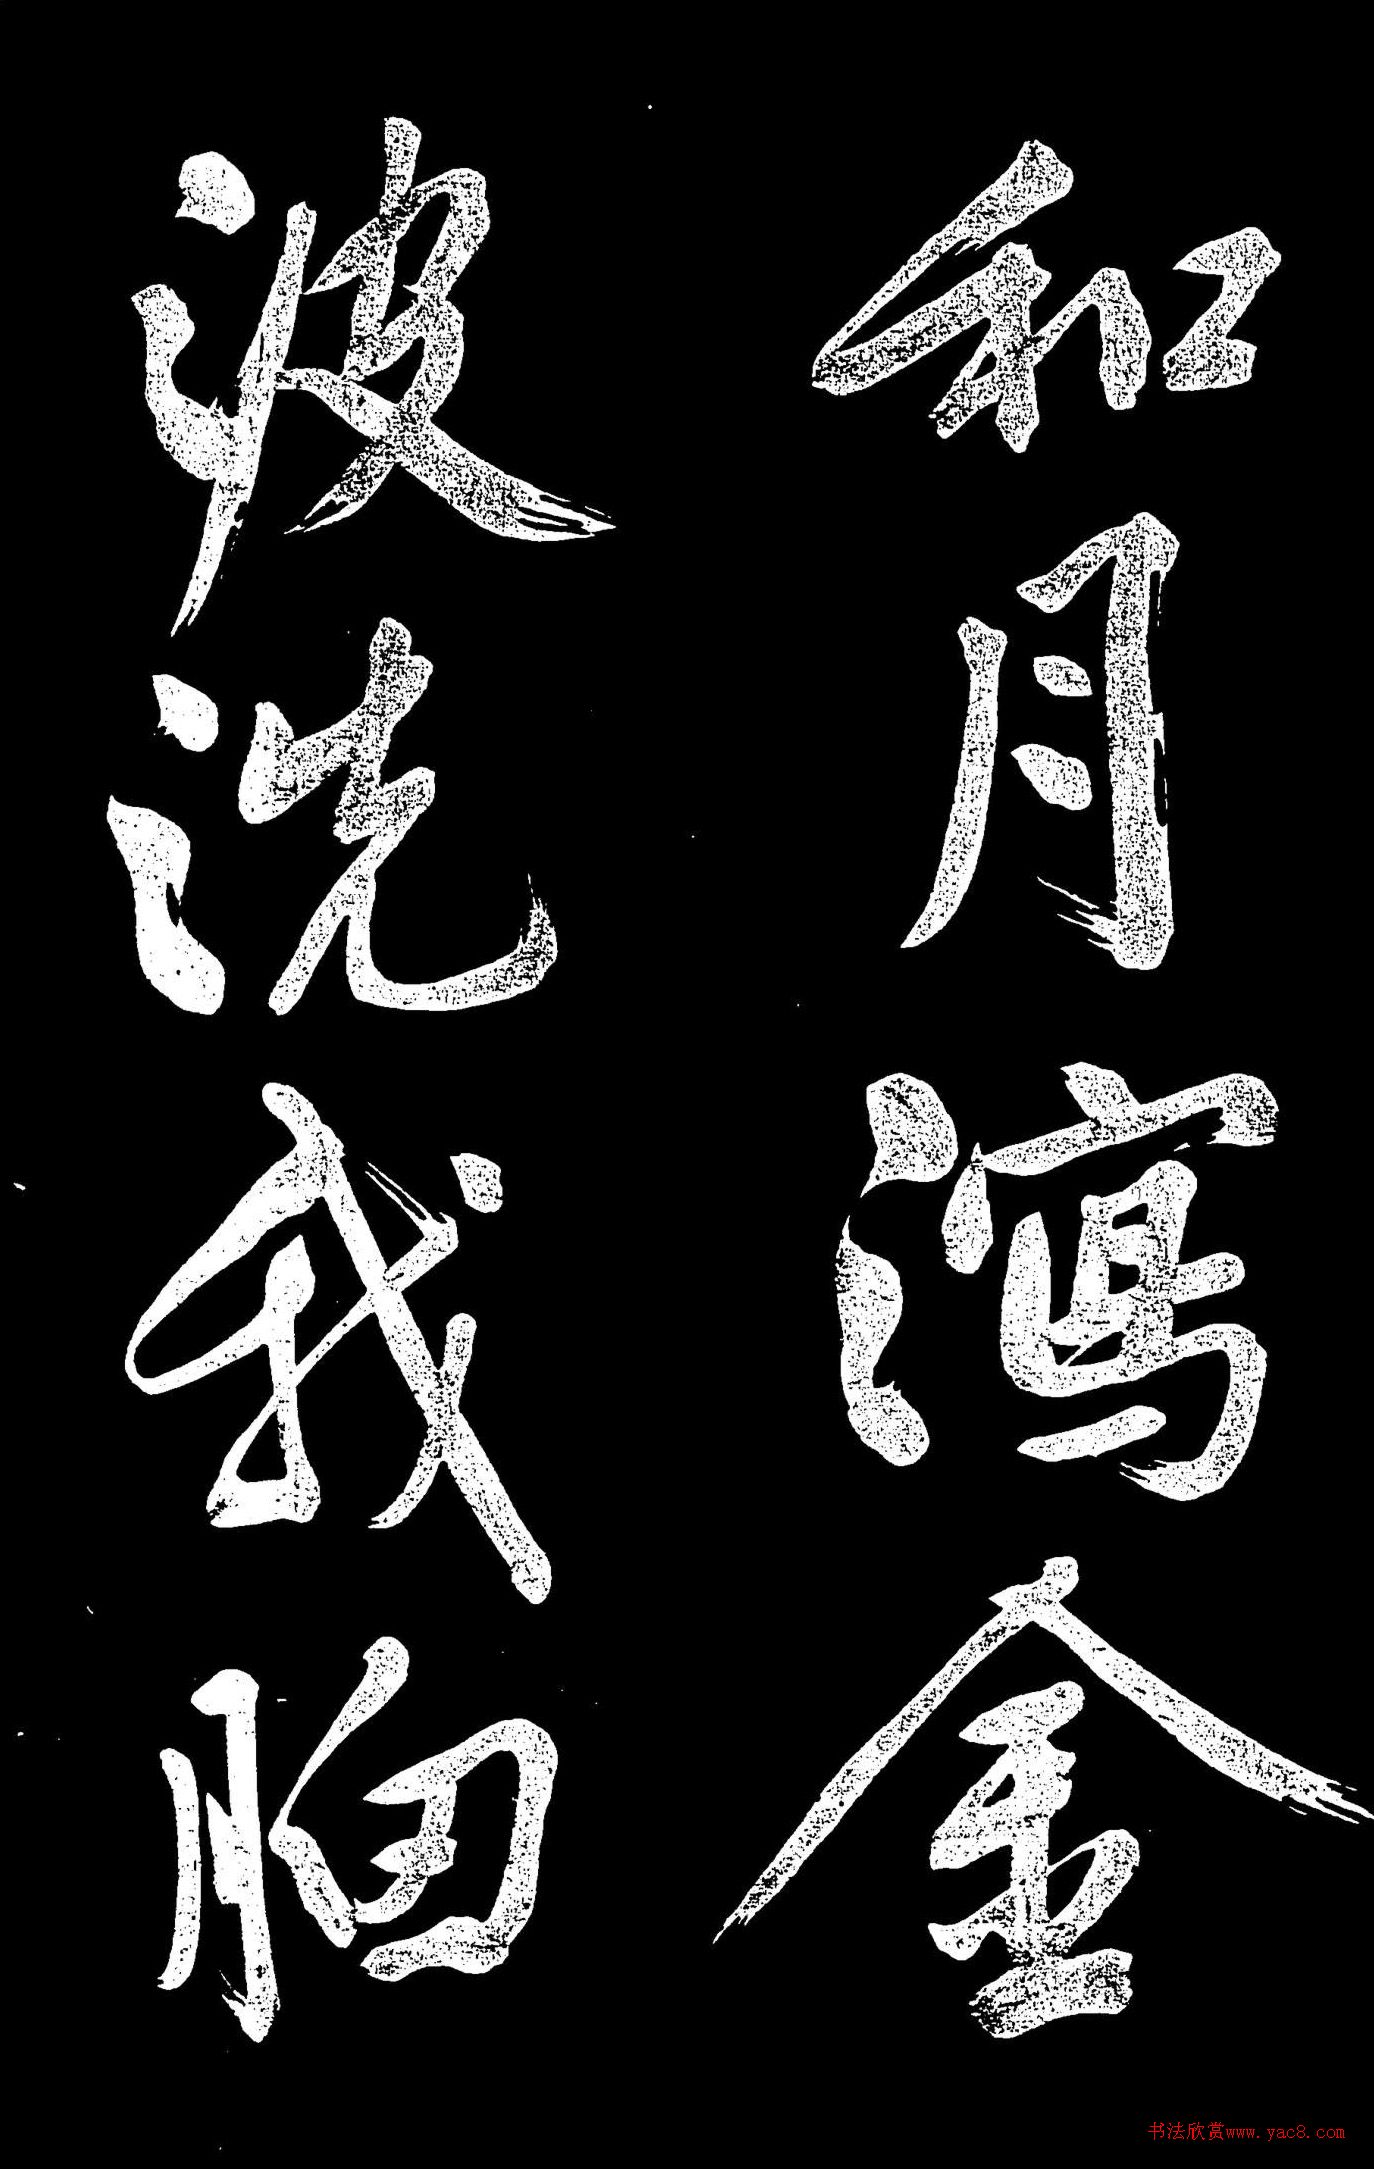 和月瀉金
波洗我胸
书法欣赏www.yac8.com